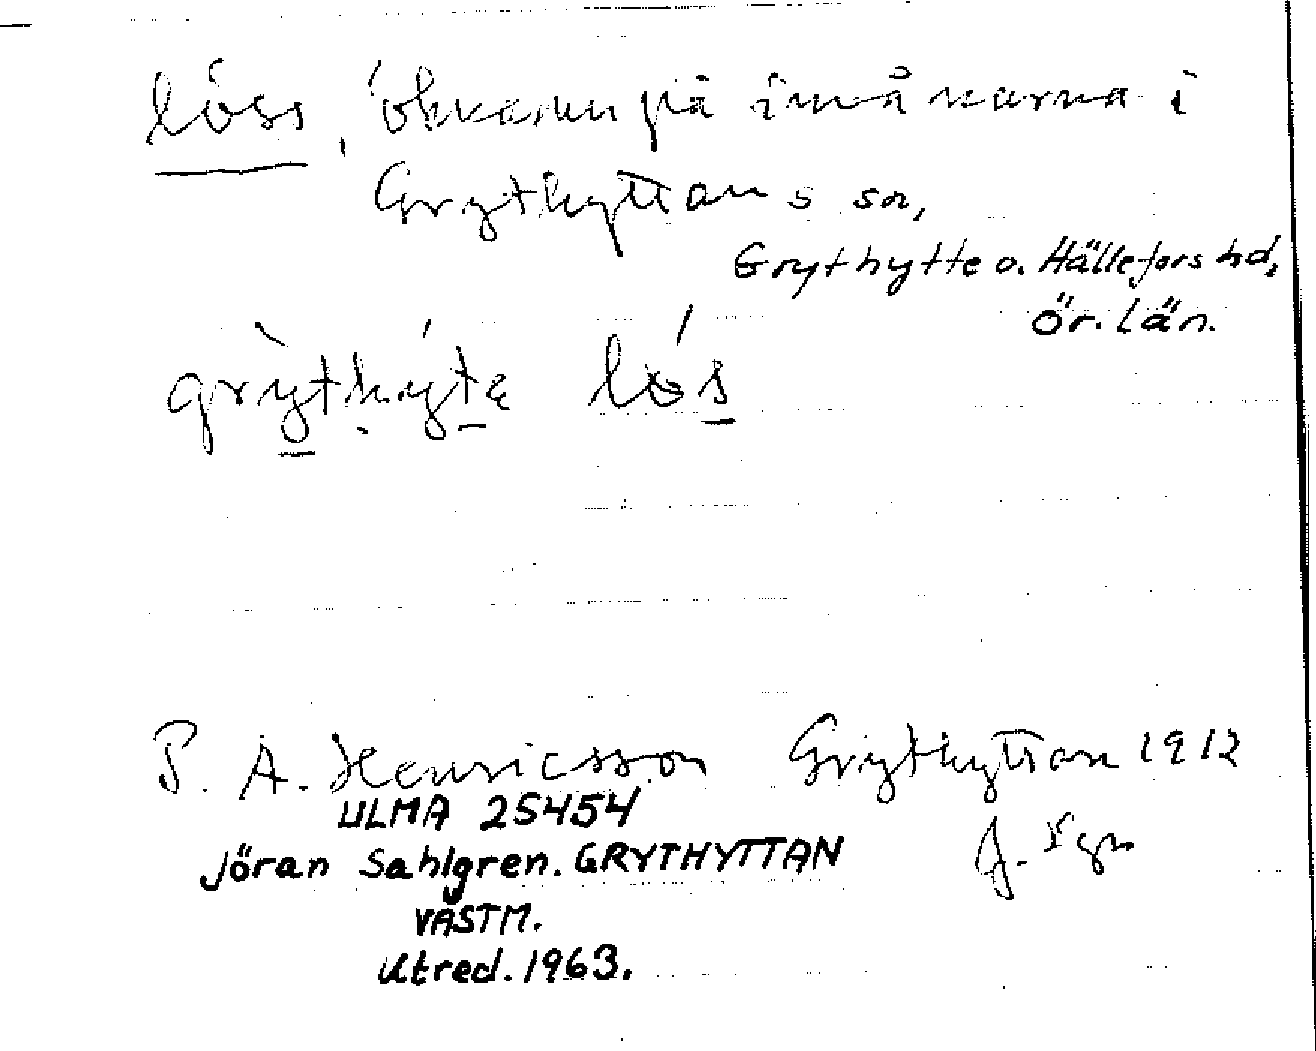 löss, öknamn på invånarna i
Grythyttans sn,
Grythytte o. Hällefors hd,
Ör. län.
grỳthýtɛ lós
P. A. Henricsson Grythyttan 1912
ULMA 25454
Jöran Sahlgren. GRYTHYTTAN
VÄSTM.
Utred. 1963.